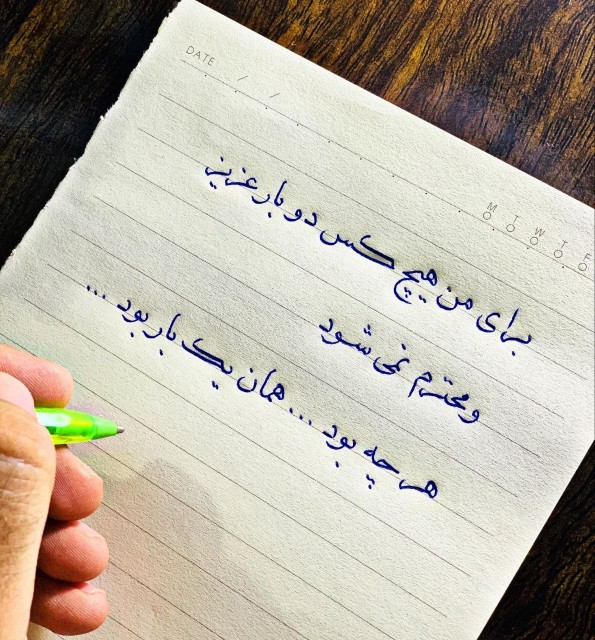 DATE / /
M T W T F
برای من هیچ کس دوبار عزیز
ومحترم نمی شود
هر چه بود... همان یک بار بود...